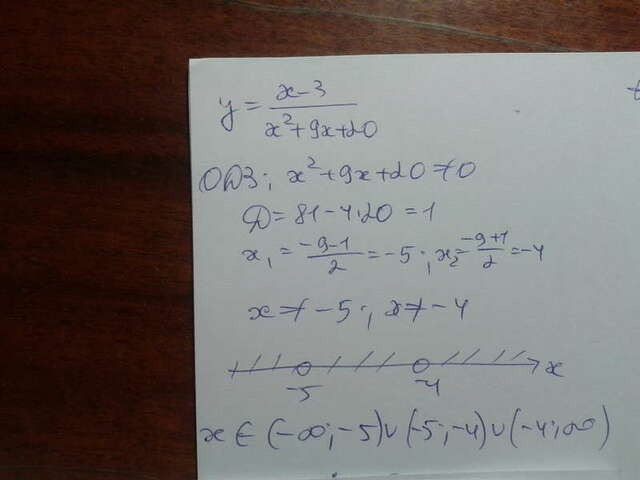 y = (x-3)/(x²+9x+20)
ОДЗ: x²+9x+20≠0
D = 81-4·20 = 1
x₁ = (-9-1)/2 = -5; x₂ = (-9+1)/2 = -4
x ≠ -5; x ≠ -4
-5 -4 x
x ∈ (-∞; -5) ∪ (-5; -4) ∪ (-4; ∞)